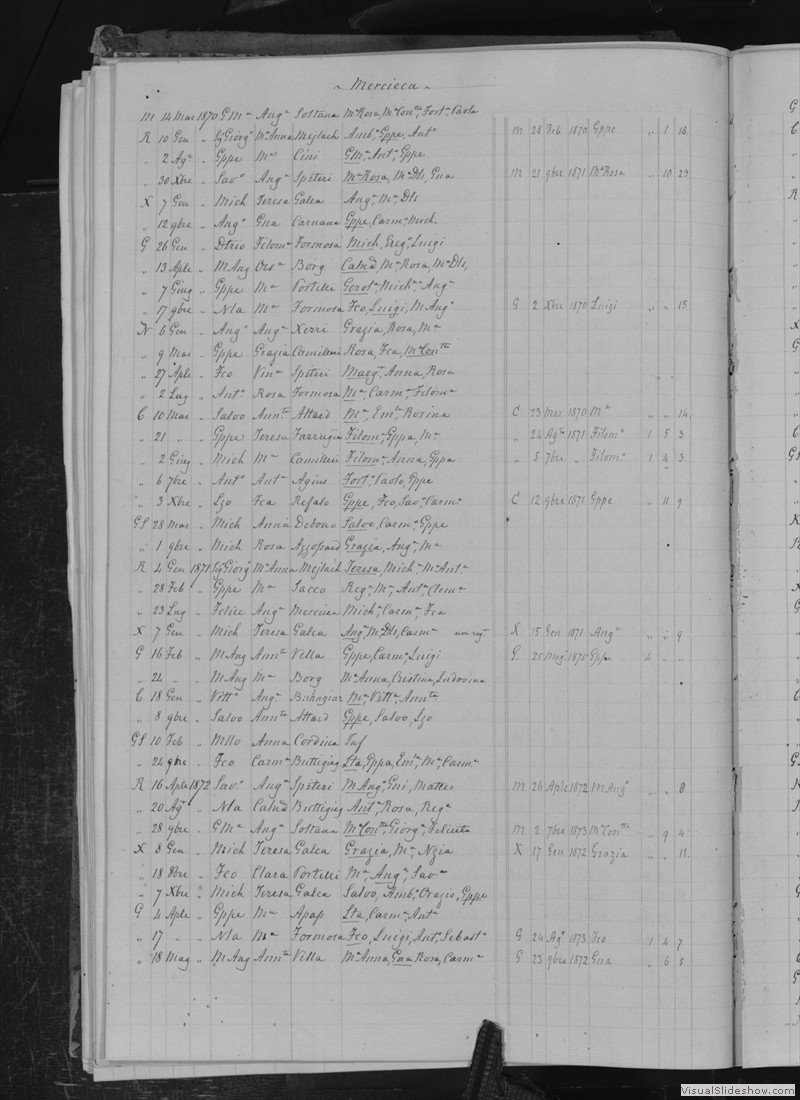 ~ Mercieca ~
M 14 Mar 1870 G Mª Angª Sottana Mª Rosa, Mª Contta, Fortª, Paola
R 10 Gen „ Sg Giorgº Mª Anna Mejlach Ambº, Gppe, Antº M 28 Feb 1870 Gppe „ 1 18
„ 2 Agº „ Gppe Mª Cini G Mª, Antº, Gppe
„ 30 Xbre „ Savº Angª Spiteri Mª Rosa, Mª Dls, Gna M 21 9bre 1871 Mª Rosa „ 10 23
X 7 Gen „ Mich Teresa Galea Angª, Mª, Dls
„ 12 9bre „ Angº Gna Caruana Gppe, Carmº, Mich
G 26 Gen „ Dtrio Filomª Formosa Mich, Gregº, Luigi
„ 13 Aple „ M Ang Orsª Borg Calnd, Mª Rosa, Mª Dls,
„ 7 Giug „ Gppe Mª Portelli Gerolº, Michº, Angº
„ 17 9bre „ Nla Mª Formosa Fco, Luigi, M Angº G 2 Xbre 1870 Luigi „ „ 15
N 6 Gen „ Angº Angª Xerri Grazia, Rosa, Mª
„ 9 Mar „ Gppe Grazia Camilleri Rosa, Fca, Mª Contta
„ 27 Aple „ Fco Vinª Spiteri Margª, Anna, Rosa
„ 2 Lug „ Antº Rosa Formosa Mª, Carmª, Filomª
C 10 Mar „ Salvo Anntª Attard Mª, Emª, Rosina C 23 Mar 1870 Mª „ „ 14
„ 21 „ „ Gppe Teresa Farrugia Filomª, Gppa, Mª „ 24 Agº 1871 Filomª 1 5 3
„ 2 Giug „ Mich Mª Camilleri Filomª, Anna, Gppa „ 5 7bre „ Filomª 1 4 3
„ 6 7bre „ Antº Antª Agius Fortº, Paolo, Gppe
„ 3 Xbre „ Lzo Fca Refalo Gppe, Fco, Savº, Carmº C 12 9bre 1871 Gppe „ 11 9
GL 28 Mar „ Mich Anna Debono Salvo, Carmº, Gppe
„ 1 9bre „ Mich Rosa Azzopard Grazia, Angª, Mª
R 4 Gen 1871 Sg Giorgº Mª Anna Mejlach Teresa, Michª, Mª Antª
„ 28 Feb „ Gppe Mª Sacco Regª, Mª, Antª, Clemª
„ 23 Lug „ Felice Angª Mercieca Michº, Carmº, Fca
X 7 Gen „ Mich Teresa Galea Angª, Mª Dls, Carmª X 15 Gen 1871 Angª „ „ 9
G 16 Feb „ M Ang Anntª Vella Gppe, Carmº, Luigi G 25 Mag 1875 Gppe 4 „ „
„ 24 „ „ M Ang Mª Borg Mª Anna, Cristina, Ludovina
C 18 Gen „ Vittº Angª Buhagiar Mª, Vittª, Anntª
„ 8 9bre „ Salvo Anntª Attard Gppe, Salvo, Lzo
GL 10 Feb „ Mllo Anna Cordina Inf
„ 24 9bre „ Fco Carmª Buttigieg Lta, Gppa, Emª, Mª Carmª
R 16 Aple 1872 Savº Angª Spiteri M Angº, Gni, Matteo M 26 Aple 1872 M Angº „ „ 8
„ 20 Agº „ Nla Calnd Buttigieg Antª, Rosa, Regª
„ 28 9bre „ G Mª Angª Sottana Mª Contta, Giorgª, Felicita M 2 7bre 1873 Mª Contta „ 9 4
X 8 Gen „ Mich Teresa Galea Grazia, Mª, Nzia X 17 Gen 1872 Grazia „ „ 11
„ 18 8bre „ Fco Clara Portelli Mª, Angª, Savª
„ 7 Xbre „ Mich Teresa Galea Salvo, Ambº, Orazio, Gppe
G 4 Aple „ Gppe Mª Apap Lta, Carmª, Antª
„ 17 „ „ Nla Mª Formosa Fco, Luigi, Antº, Sebastº G 24 Agº 1873 Fco 1 4 7
„ 18 Mag „ M Ang Anntª Vella Mª Anna, Gna, Rosa, Carmª G 23 9bre 1872 Gna „ 6 5
VisualSlideshow.com